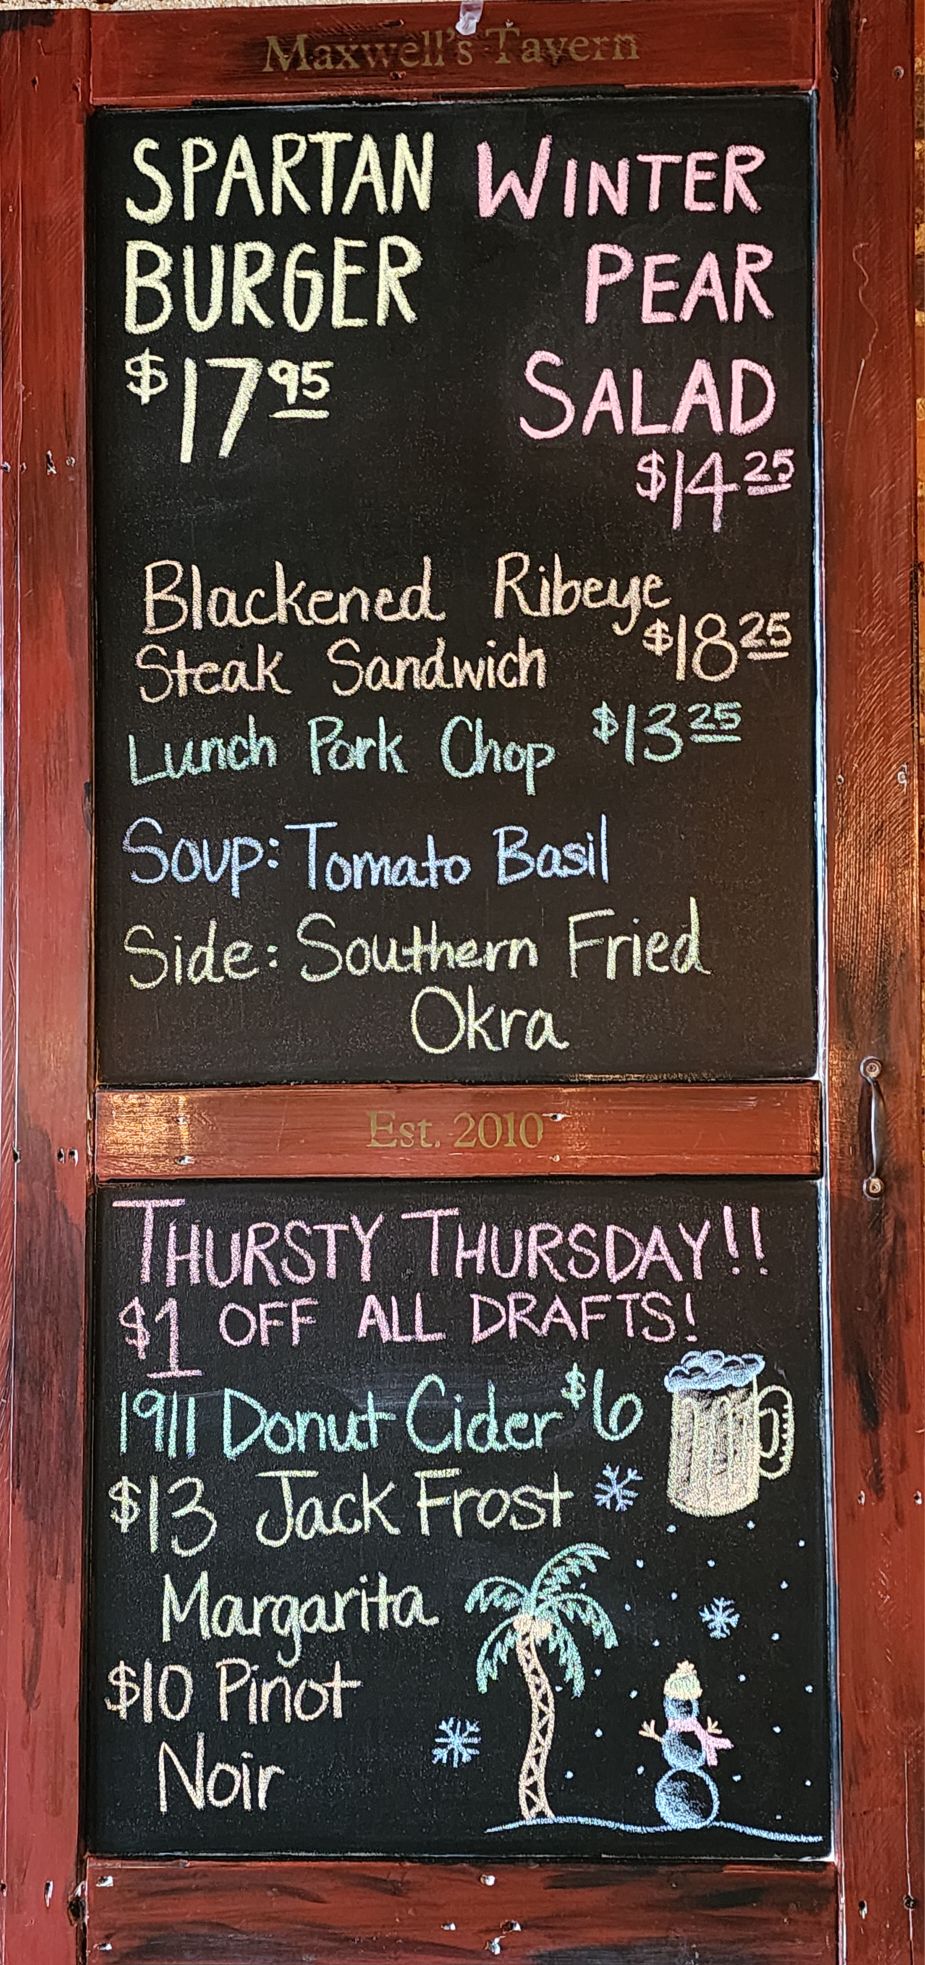 Maxwell's Tavern
SPARTAN
BURGER
$17 95
WINTER
PEAR
SALAD
$14 25
Blackened Ribeye
Steak Sandwich $18 25
Lunch Pork Chop $13 25
Soup: Tomato Basil
Side: Southern Fried
Okra
Est. 2010
THURSTY THURSDAY!!
$1 OFF ALL DRAFTS!
1911 Donut Cider $6
$13 Jack Frost
Margarita
$10 Pinot
Noir